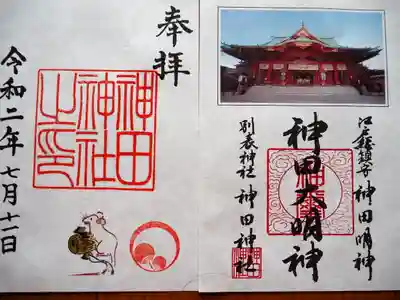 奉拝
神田
神社
之印
令和二年七月十一日
江戸総鎮守 神田明神
神田大明神
別表神社 神田神社